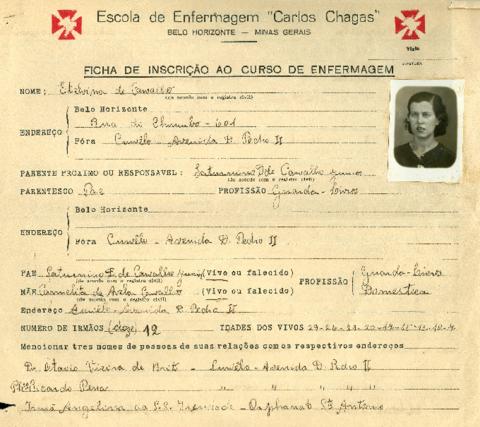 Escola de Enfermagem "Carlos Chagas"
BELO HORIZONTE — MINAS GERAIS
Visto
FICHA DE INSCRIÇÃO AO CURSO DE ENFERMAGEM
NOME: Etelvina de Carvalho
(de acordo com o registro civil)
Belo Horizonte
Rua do Chumbo - 601
ENDEREÇO
Fóra Curvêlo - Avenida D. Pedro II
PARENTE PROXIMO OU RESPONSAVEL: Saturnino de Carvalho Junior
(de acordo com o registro civil)
PARENTESCO Pae PROFISSÃO Guarda-livros
Belo Horizonte
ENDEREÇO
Fóra Curvêlo - Avenida D. Pedro II
PAE Saturnino F. de Carvalho Junior (Vivo ou falecido) PROFISSÃO Guarda-Livros
(de acordo com o registro civil)
MÃE Carmelita de Carvalho (Vivo ou falecido) Domestica
(de acordo com o registro civil)
Endereço Curvêlo - Avenida D. Pedro II
NUMERO DE IRMÃOS (doze) 12 IDADES DOS VIVOS
Mencionar três nomes de pessoas de suas relações com os respectivos endereços:
Dr. Otavio Vieira de Brito - Curvêlo - Avenida D. Pedro II
Ricardo Pena " " " "
Irmã Angelina - Orphanato Sto Antonio